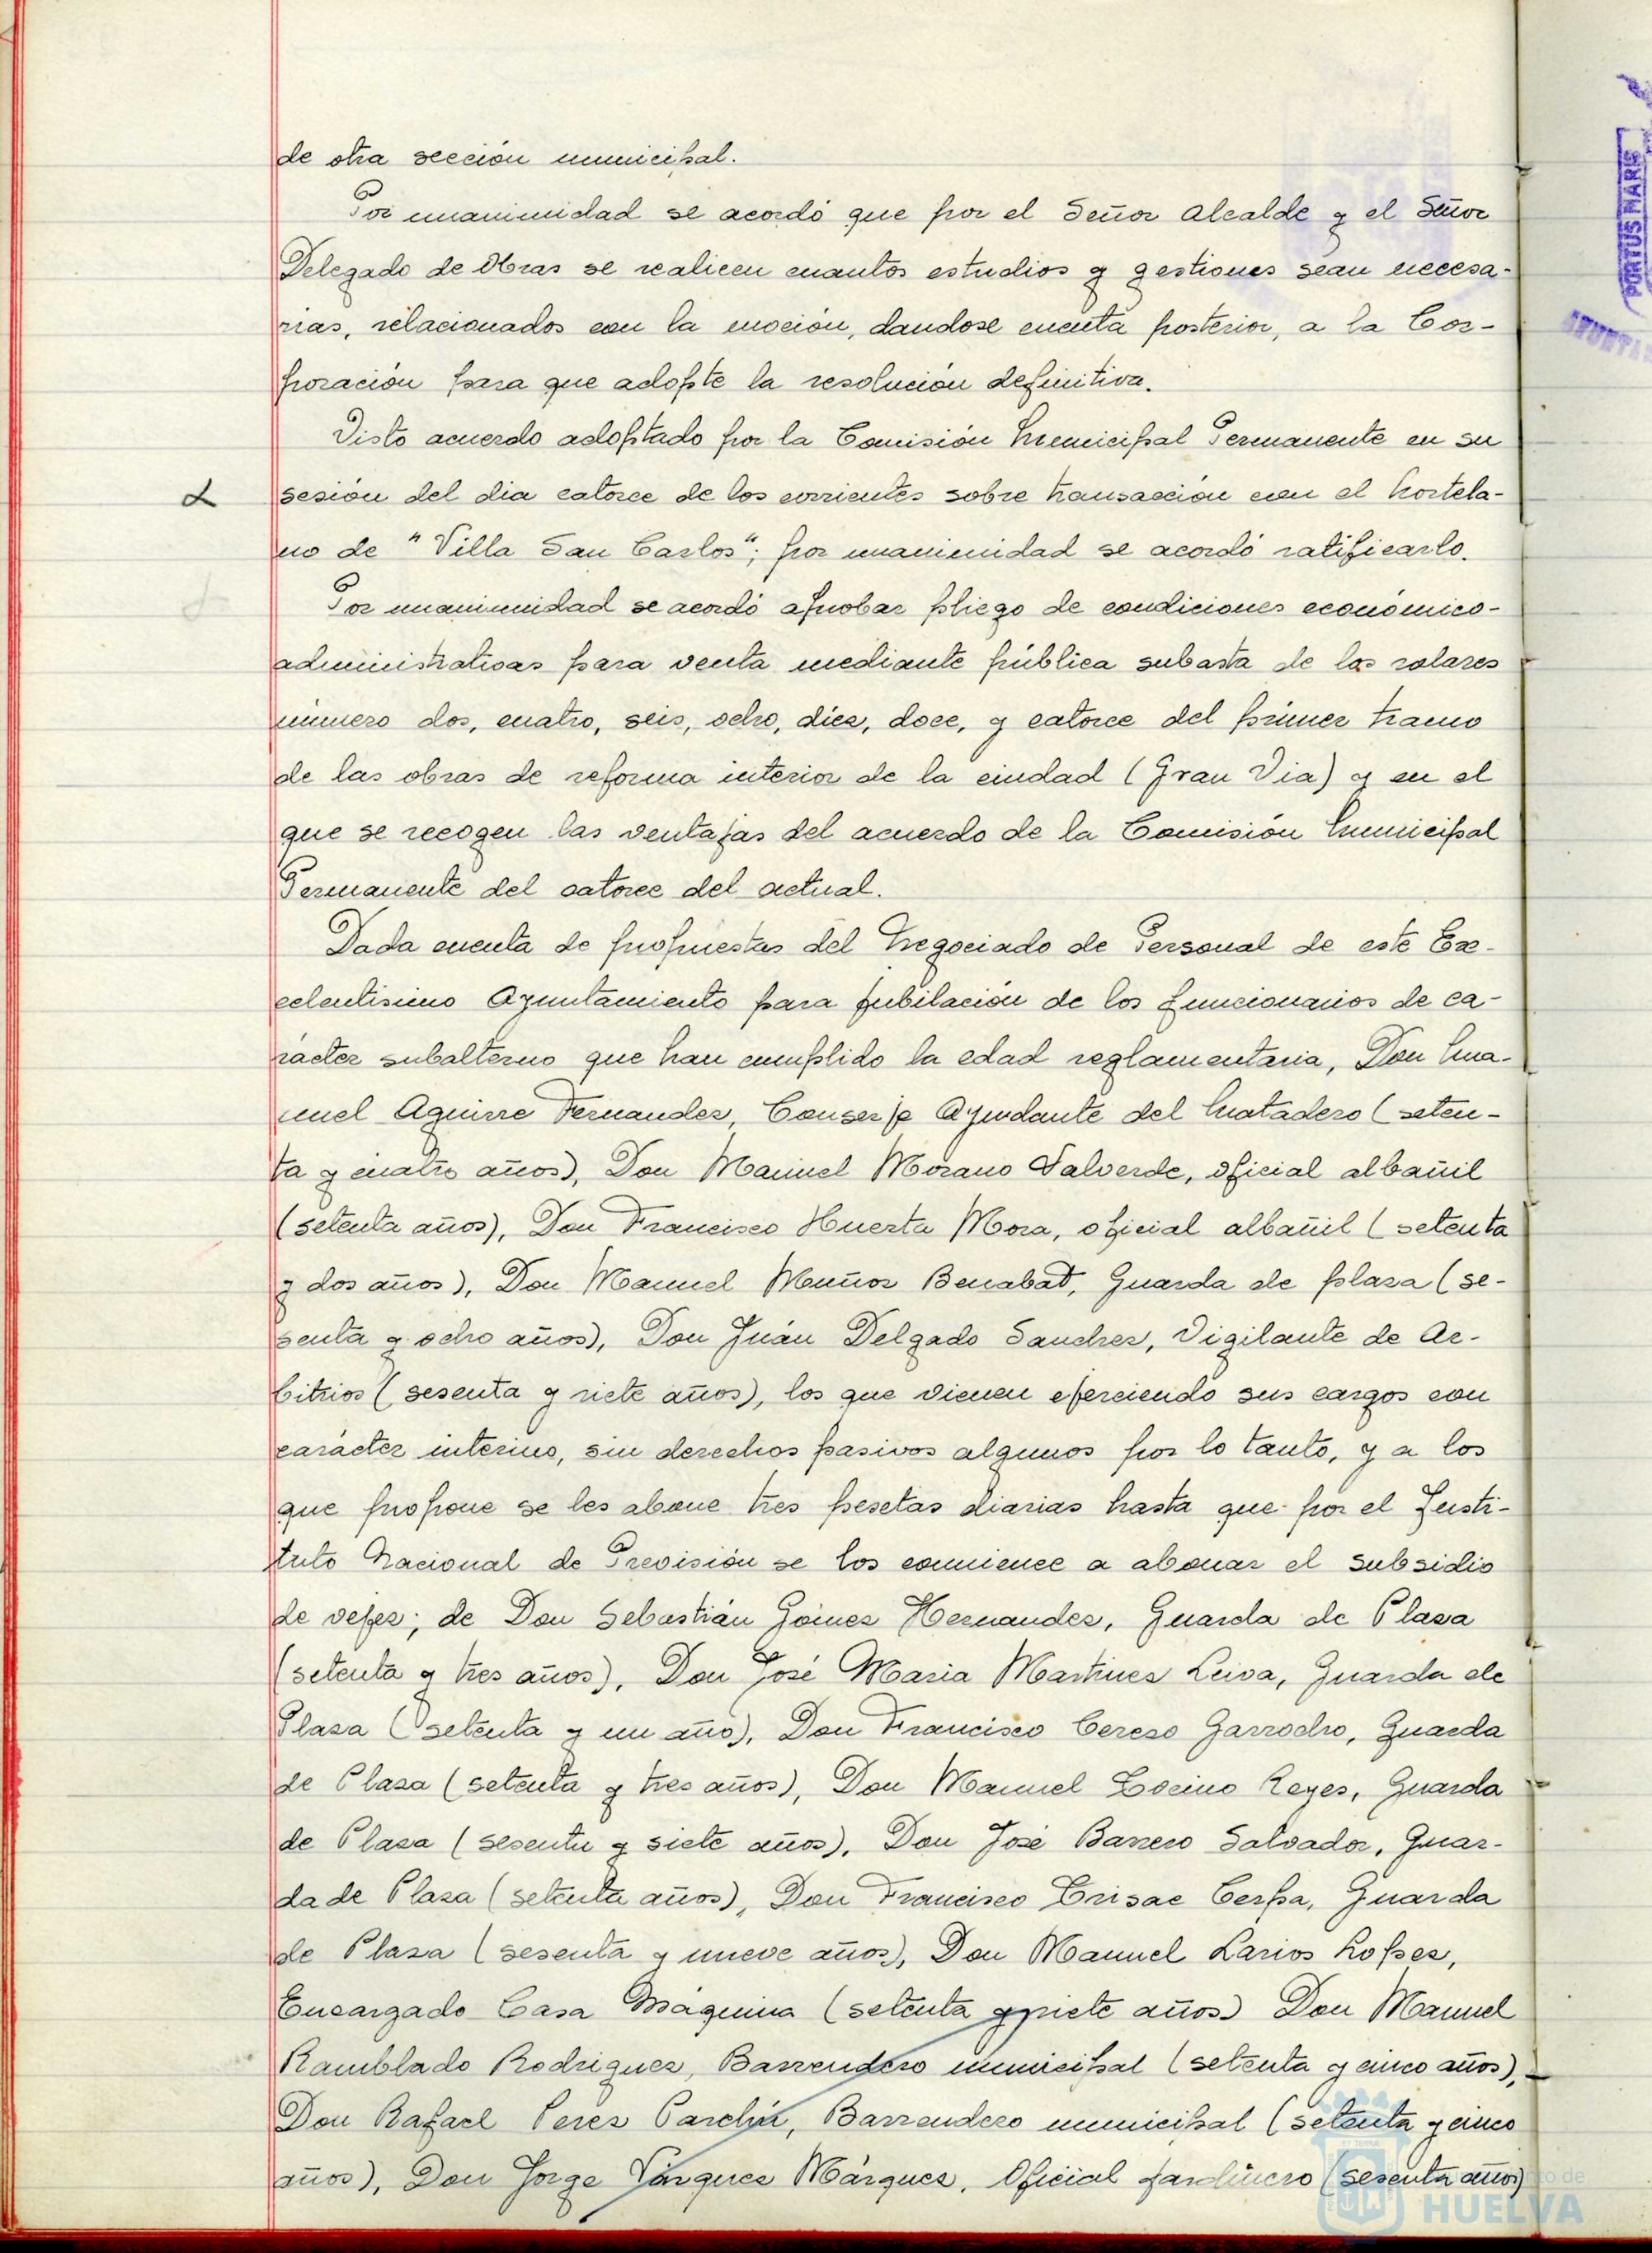 de otra sección municipal.
Por unanimidad se acordó que por el Señor Alcalde y el Señor
Delegado de Obras se realicen cuantos estudios y gestiones sean necesa-
rias, relacionados con la moción, dandose cuenta posterior, a la Cor-
poración para que adopte la resolución definitiva.
Visto acuerdo adoptado por la Comisión Municipal Permanente en su
sesión del dia catorce de los corrientes sobre transacción con el hortela-
no de "Villa San Carlos"; por unanimidad se acordó ratificarlo.
Por unanimidad se acordó aprobar pliego de condiciones económico-
administrativas para venta mediante pública subasta de los solares
número dos, cuatro, seis, ocho, diez, doce, y catorce del primer tramo
de las obras de reforma interior de la ciudad (Gran Via) y en el
que se recogen las ventajas del acuerdo de la Comisión Municipal
Permanente del catorce del actual.
Dada cuenta de propuestas del Negociado de Personal de este Ex-
celentisimo Ayuntamiento para jubilación de los funcionarios de ca-
rácter subalterno que han cumplido la edad reglamentaria, Don Ma-
nuel Aguirre Fernandez, Conserje Ayudante del Matadero (seten-
ta y cuatro años), Don Manuel Morano Valverde, oficial albañil
(setenta años), Don Francisco Huerta Mora, oficial albañil (setenta
y dos años), Don Manuel Muñoz Benabat, Guarda de plaza (se-
senta y ocho años), Don Juán Delgado Sanchez, Vigilante de Ar-
bitrios (sesenta y siete años), los que vienen ejerciendo sus cargos con
carácter interino, sin derechos pasivos algunos por lo tanto, y a los
que propone se les abone tres pesetas diarias hasta que por el Insti-
tuto Nacional de Previsión se los comience a abonar el subsidio
de vejez; de Don Sebastián Goimez Hernandez, Guarda de Plaza
(setenta y tres años), Don José Maria Martinez Leiva, Guarda de
Plaza (setenta y un año), Don Francisco Cerezo Garrocho, Guarda
de Plaza (setenta y tres años), Don Manuel Cocino Reyes, Guarda
de Plaza (sesenta y siete años), Don José Barrero Salvador, Guar-
da de Plaza (setenta años), Don Francisco Crisac Cerpa, Guarda
de Plaza (sesenta y nueve años), Don Manuel Larios Lopez,
Encargado Casa Máquina (setenta y siete años) Don Manuel
Ramblado Rodriguez, Barrendero municipal (setenta y cinco años),
Don Rafael Perez Parchín, Barrendero municipal (setenta y cinco
años), Don Jorge Vázquez Márquez, Oficial jardinero (sesenta años)
PORTUS MARIS
HUELVA